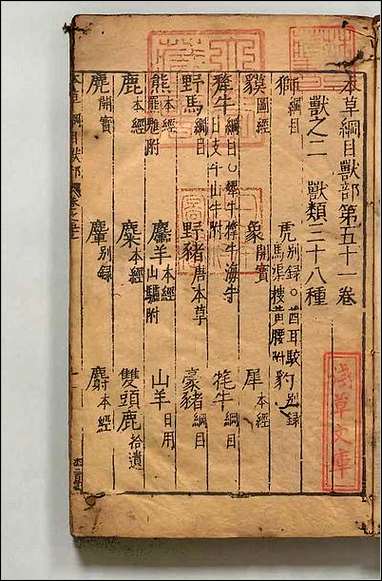 本草綱目獸部第五十一卷
獸之二　獸類三十八種
獅綱目　虎別錄○酋耳駮馬渠搜黃腰附　豹別錄
貘圖經　象開寶　犀本經
犛牛綱目　犩牛㹈牛海牛月支牛山牛附　牦牛綱目
野馬綱目　野豬唐本草　豪豬綱目
熊本經羆魋附　麢羊本經山驢附　山羊日用
鹿本經　麋本經　雙頭鹿拾遺
麂開寶　麞別錄　麝本經
淺草文庫